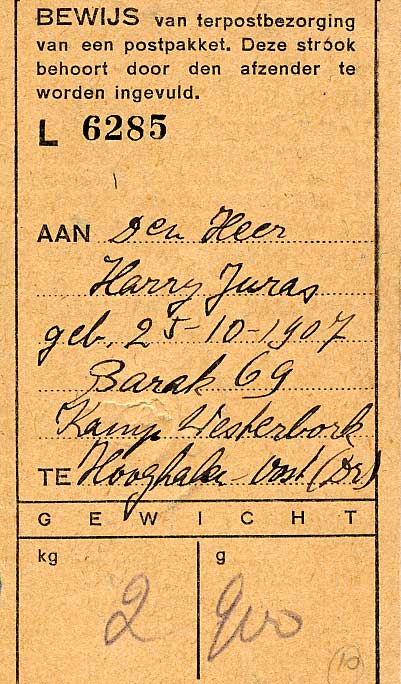 BEWIJS van terpostbezorging
van een postpakket. Deze strook
behoort door den afzender te
worden ingevuld.
L 6285
AAN Den Heer
Harry Juras
geb. 25-10-1907
Barak 69
Kamp Westerbork
TE Hooghalen-Oost (Dr)
GEWICHT
kg g
2 900
10